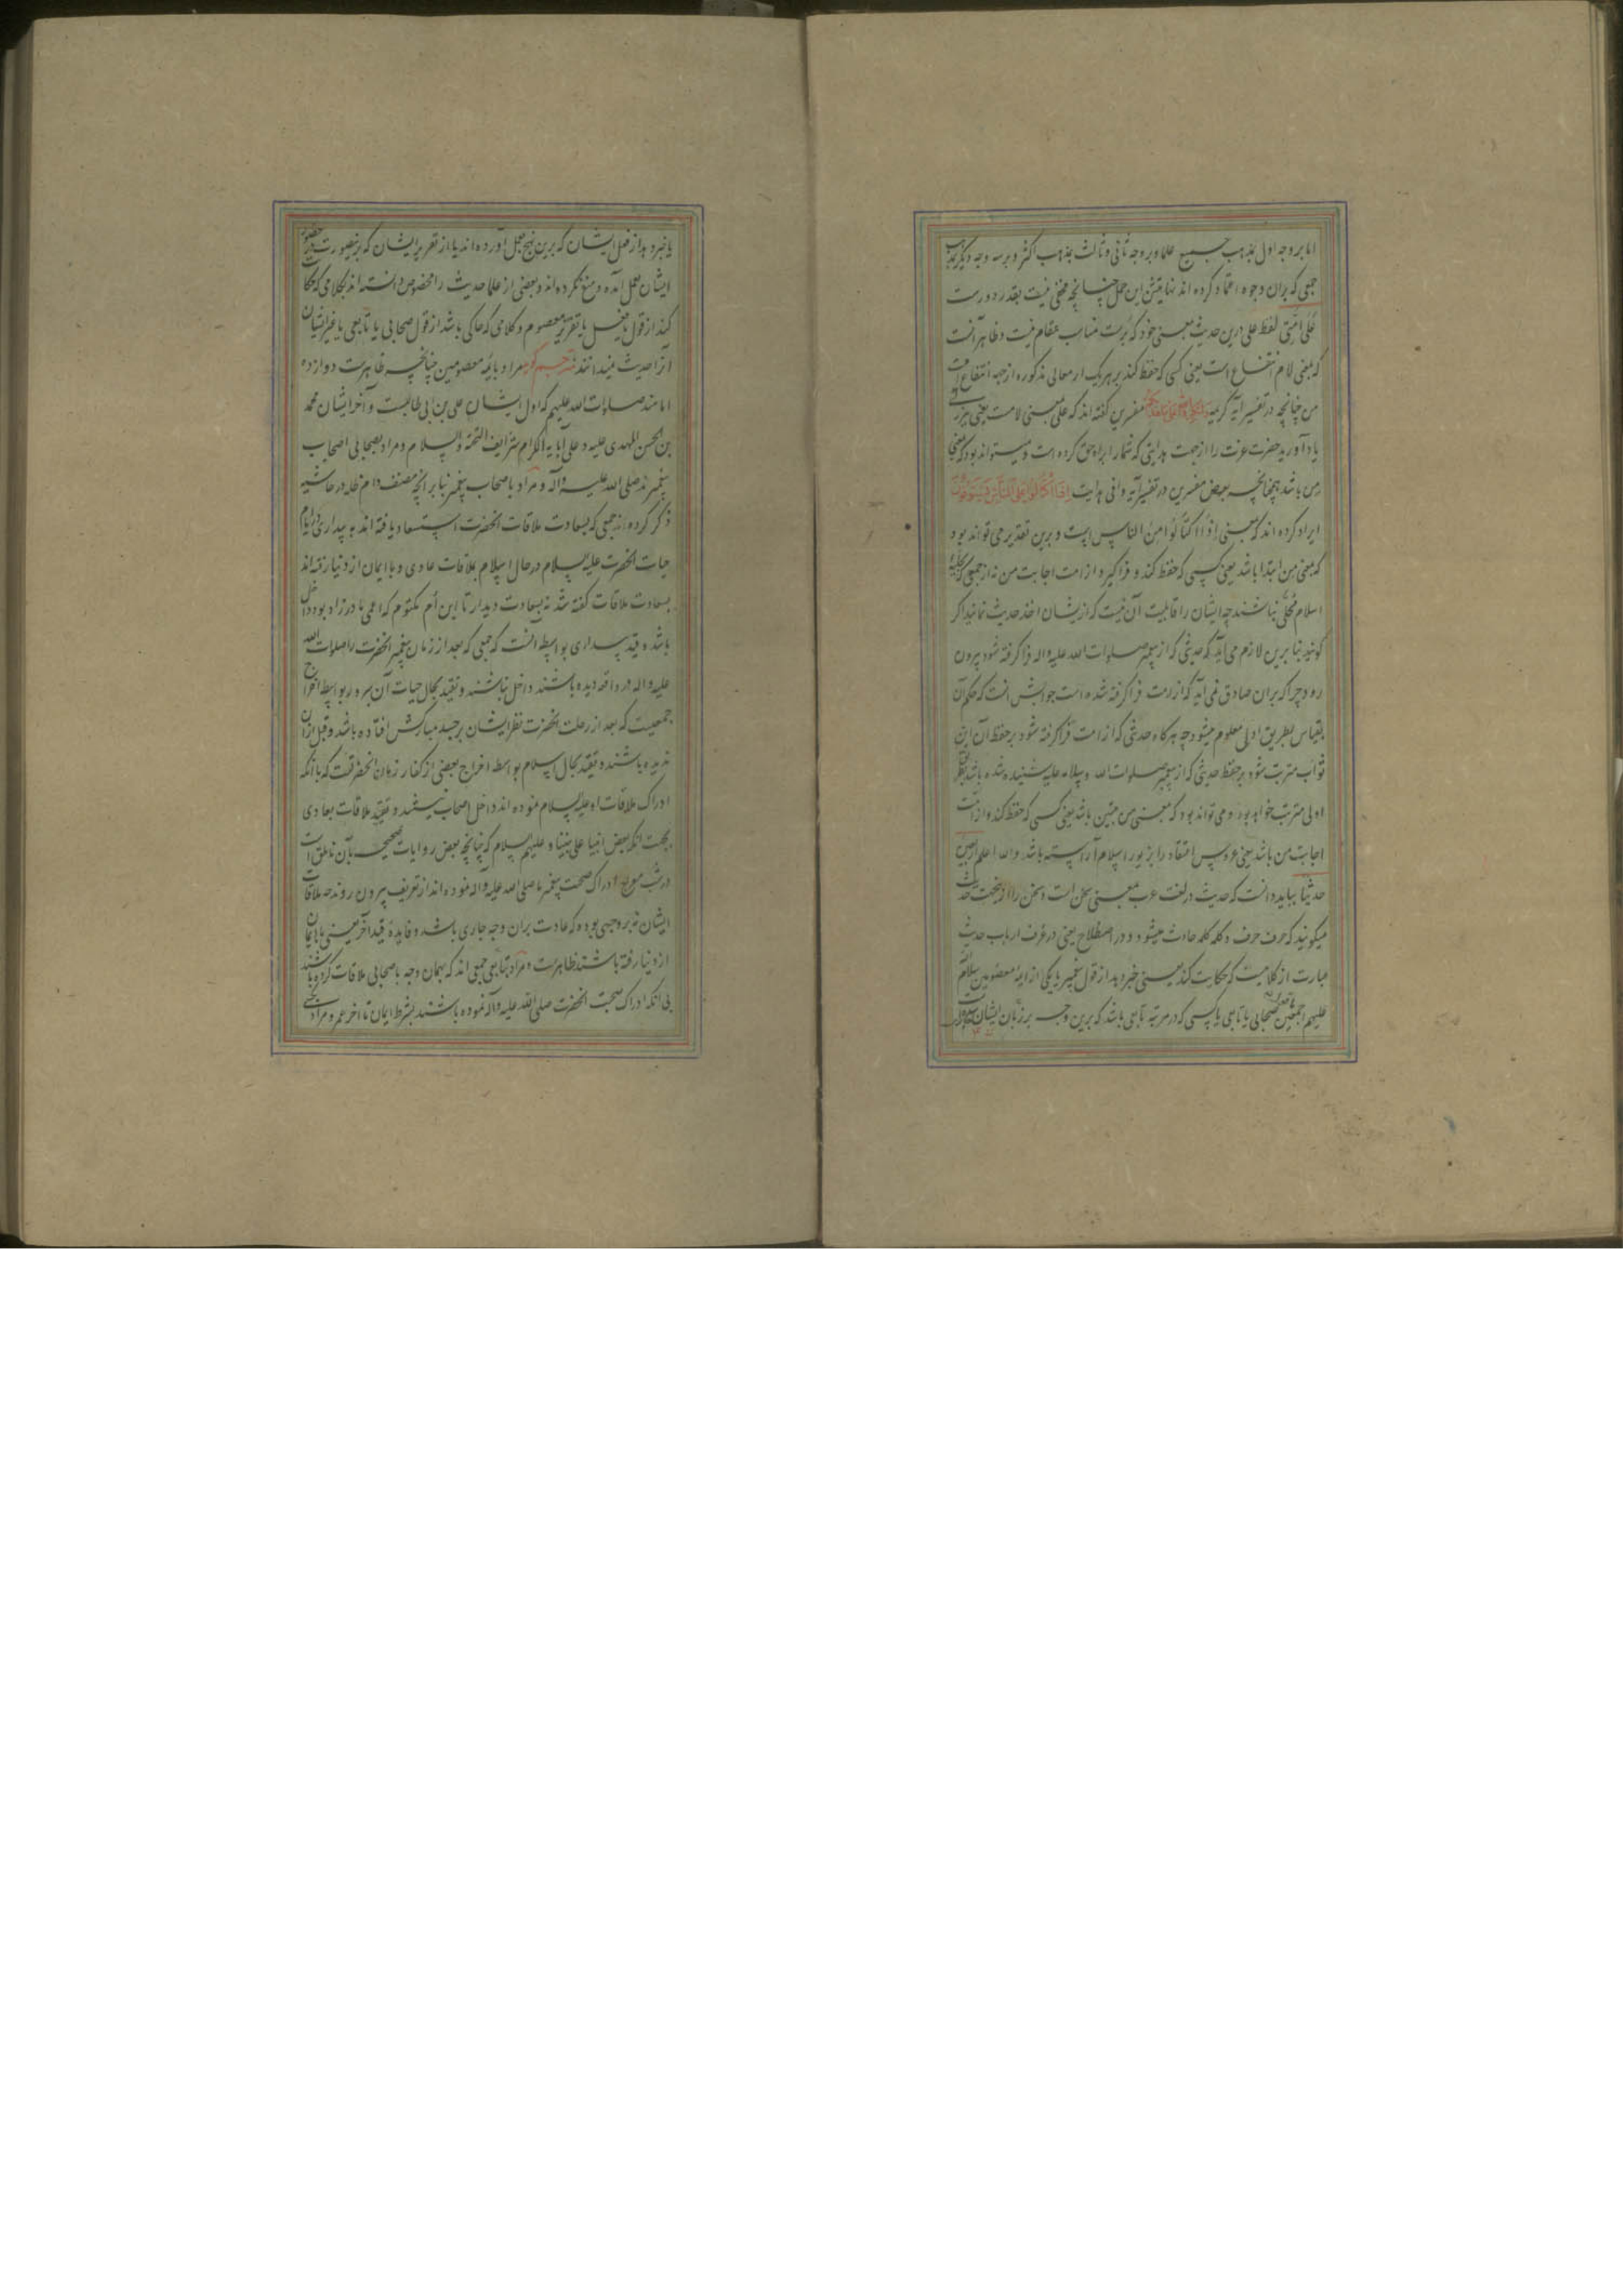 اما بر وجه اول بمذهب جمیع علما و بر وجه ثانی و ثالث بمذهب اکثر و بر سه وجه دیگر بمذهب
جمعی که بران وجوه اعتماد کرده اند نهایتش این حمل چنانچه مخفی نیست بقدر دورست
عَلی اُمَّتی لفظ علی درین حدیث بمعنی خود که بُرست مناسب مقام نیست و ظاهر آنست
که بمعنی لام انتفاع است یعنی کسی که حفظ کند بر هر یک از معانی مذکوره از جهة انتفاع امت
من چنانچه در تفسیر آیه کریمه ولتکبروا الله علی ما هدیکم مفسرین گفته اند که علی بمعنی لامست یعنی ببزرگی
یاد آورید حضرت عزت را از جهت هدایتی که شما را براه حق کرده است و میتواند بود که بمعنی
من باشد همچنانچه بعض مفسرین در تفسیر آیه وافی هدایت اِذَا اکْتَالُوا عَلَی النَّاسِ یَسْتَوْفُونَ
ایراد کرده اند که بمعنی اِذَا اکتَالُوا مِنَ الناس است و برین تقدیر می تواند بود
که بمعنی مِن ابتدا باشد یعنی کسی که حفظ کند و فرا گیرد از امت اجابت من نه از جمعی که بحلیه
اسلام مُحلّی نباشند چه ایشان را قابلیت آن نیست که از یشان اخذ حدیث نمایند اگر
گویند بنا برین لازم می آید که حدیثی که از پیغمبر صلوات الله علیه و اله فرا گرفته شود بیرون
رود چرا که بران صادق نمی آید که از امت فرا گرفته شده است جوابش انست که حکم آن
بقیاس بطریق اولی معلوم میشود چه هر گاه حدیثی که از امت فرا گرفته شود بر حفظ آن این
ثواب مترتب شود بر حفظ حدیثی که از پیغمبر صلوات الله و سلامه علیه شنیده شده باشد بطریق
اولی مترتب خواهد بود و می تواند بود که بمعنی من مبین باشد یعنی کسی که حفظ کند و از امت
اجابت من باشد یعنی عروس اعتقاد را بزیور اسلام آراسته باشد والله اعلم اربعین
حدیثا بباید دانست که حدیث در لغت عرب بمعنی سخن است و سخن را از بجهت حدیث
میگویند که حرف حرف و کلمه کلمه حادث میشود و در اصطلاح یعنی در عرف ارباب حدیث
عبارت از کلامیست که حکایت کند یعنی خبر دهد از قول پیغمبر یا یکی از ایمهٔ معصومین سلام الله
علیهم اجمعین صحابی یا تابعی یا کسی که در مرتبه تابعی باشد که برین وجه بر زبان ایشان
یا خبر دهد از فعل ایشان که برین نهج بعمل آورده اند یا از تقریر ایشان که برینصورت در حضور
ایشان بعمل آمده و منع نکرده اند و بعضی از علما حدیث را مخصوص دانسته اند بکلامی که حکایت
کند از قول یا فعل یا تقریر معصوم و کلامی که حاکی باشد از قول صحابی یا تابعی یا غیر ایشان
آنرا حدیث نمیدانند مترجم گوید مراد بایمهٔ معصومین چنانچه ظاهرست دوازده
امامند صلوات الله علیهم که اول ایشان علی بن ابی طالبست و آخر ایشان محمد
بن الحسن المهدی علیه و علی آبایه الکرام شرایف التحیة و السلام و مراد بصحابی اصحاب
پیغمبرند صلی الله علیه و اله و مراد باصحاب پیغمبر بنا بر انچه مصنف دام ظله در حاشیه
ذکر کرده اند جمعی که بسعادت ملاقات انحضرت استسعاد یافته اند به بیداری در ایام
حیات انحضرت علیه السلام در حال اسلام بملاقات عادی و با ایمان از دنیا رفته اند
بسعادت ملاقات گفته شد نه بسعادت دیدار تا ابن اُم مکتوم که اعمی مادر زاد بود داخل
باشد و قید بیداری بواسطهٔ انست که جمعی که بعد از زمان پیغمبر انحضرت را صلوات الله
علیه و اله در واقعه دیده باشند داخل نباشند و تقیید بحال حیات آن سرور بواسطه اخراج
جمعیست که بعد از رحلت انحضرت نظر ایشان بر جسد مبارکش افتاده باشد و قبل از ان
ندیده باشند و تقیید بحال اسلام بواسطه اخراج بعضی از کفار زمان انحضرتست که با آنکه
ادراک ملاقات او علیه السلام نموده اند داخل اصحاب نیستند و تقیید ملاقات بعادی
بجهت انکه بعض انبیا علی نبینا و علیهم السلام که چنانچه بعض روایات صحیحه بآن ناطق است
در شب معراج ادراک صحبت پیغمبر ما صلی الله علیه و اله نموده اند از تعریف بیرون روند چه ملاقات
ایشان نه بر وجهی بوده که عادت بران وجه جاری باشد و فایدهٔ قید آخر یعنی با ایمان
از دنیا رفته باشند ظاهرست و مراد بتابعی جمعی اند که بهمان وجه با صحابی ملاقات کرده باشند
بی انکه ادراک صحبت انحضرت صلی الله علیه و اله نموده باشند بشرط ایمان تا اخر عمر و مراد